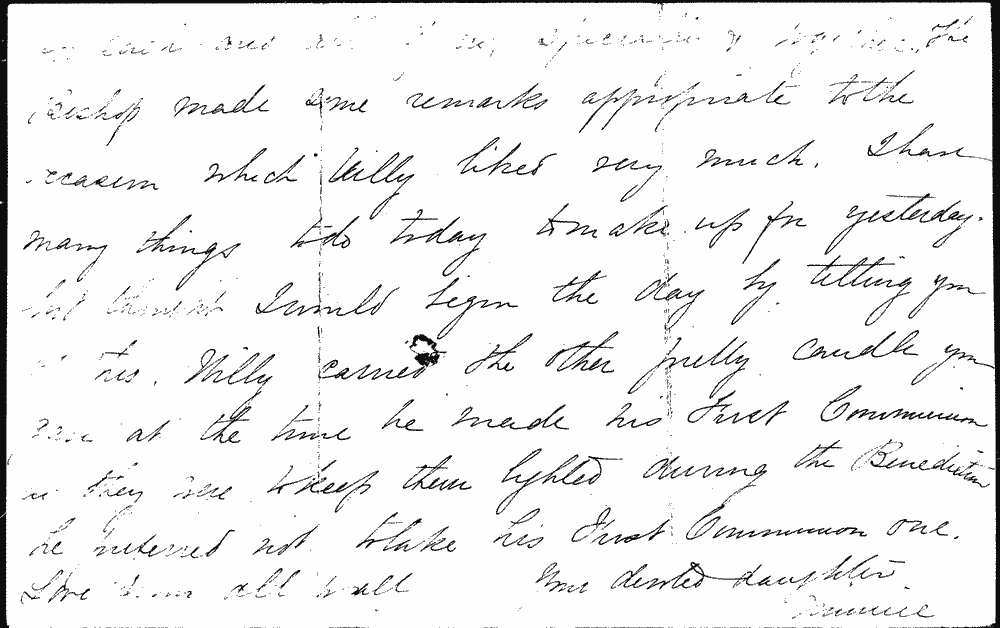 and all together. The
Bishop made some remarks appropriate to the
occasion which Willy liked very much. I have
many things to do today to make up for yesterday.
but thought I would begin the day by telling you
this. Willy carried the other pretty candle you
gave at the time he made his First Communion
as they were to keep them lighted during the Benediction
he preferred not to take his First Communion one.
Love from all to all Your devoted daughter